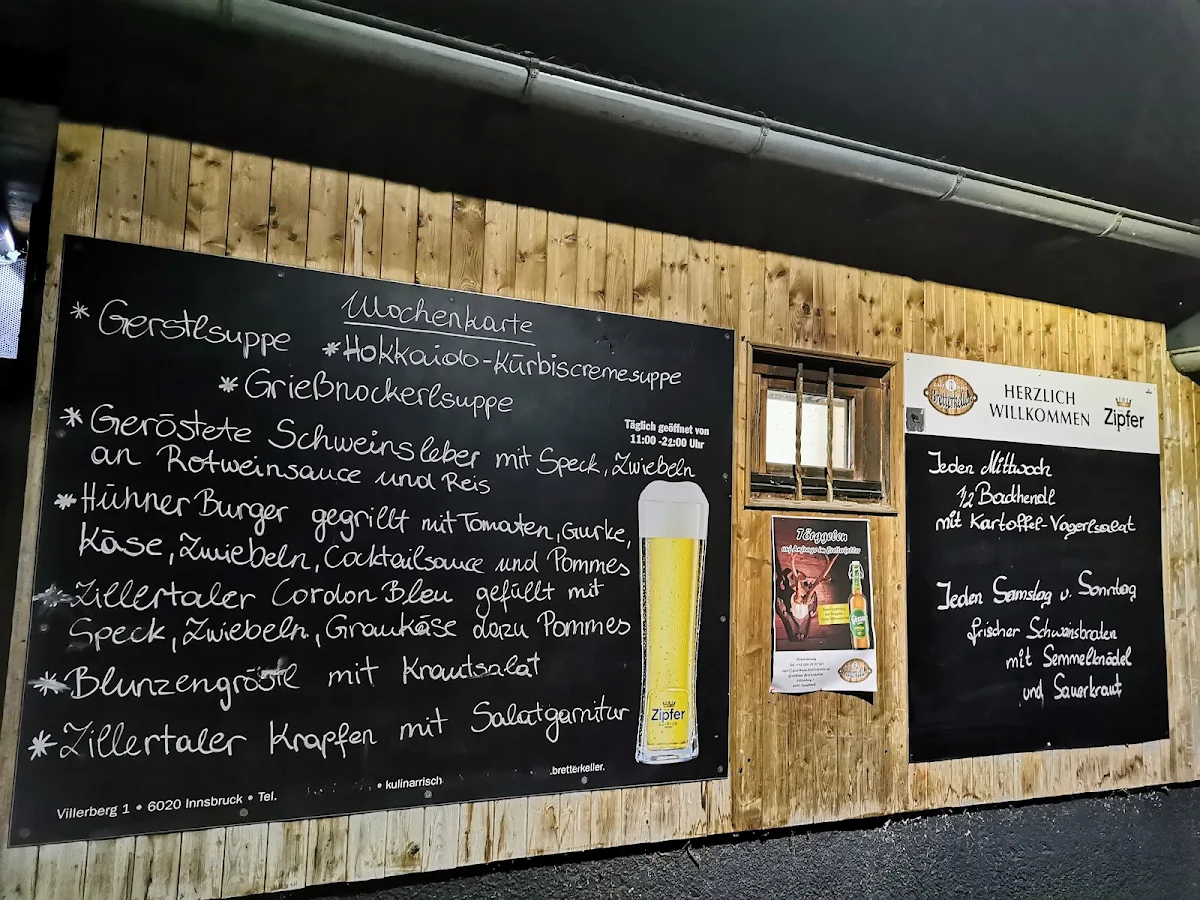 Wochenkarte
* Gerstlsuppe * Hokkaido-Kürbiscremesuppe
* Grießnockerlsuppe
* Geröstete Schweinsleber mit Speck, Zwiebeln
an Rotweinsauce und Reis
* Hühner Burger gegrillt mit Tomaten, Gurke,
Käse, Zwiebeln, Cocktailsauce und Pommes
* Zillertaler Cordon Bleu gefüllt mit
Speck, Zwiebeln, Graukäse dazu Pommes
* Blunzengröstl mit Krautsalat
* Zillertaler Krapfen mit Salatgarnitur
Täglich geöffnet von
11:00 -21:00 Uhr
Zipfer
Villerberg 1 • 6020 Innsbruck • Tel.
• kulinarrisch
.bretterkeller.
Törggelen
auf Anfrage im Bretterkeller
HERZLICH
WILLKOMMEN
Zipfer
Jeden Mittwoch
1/2 Backhendl
mit Kartoffel-Vogerlsalat
Jeden Samstag u. Sonntag
frischer Schweinsbraten
mit Semmelknödel
und Sauerkraut